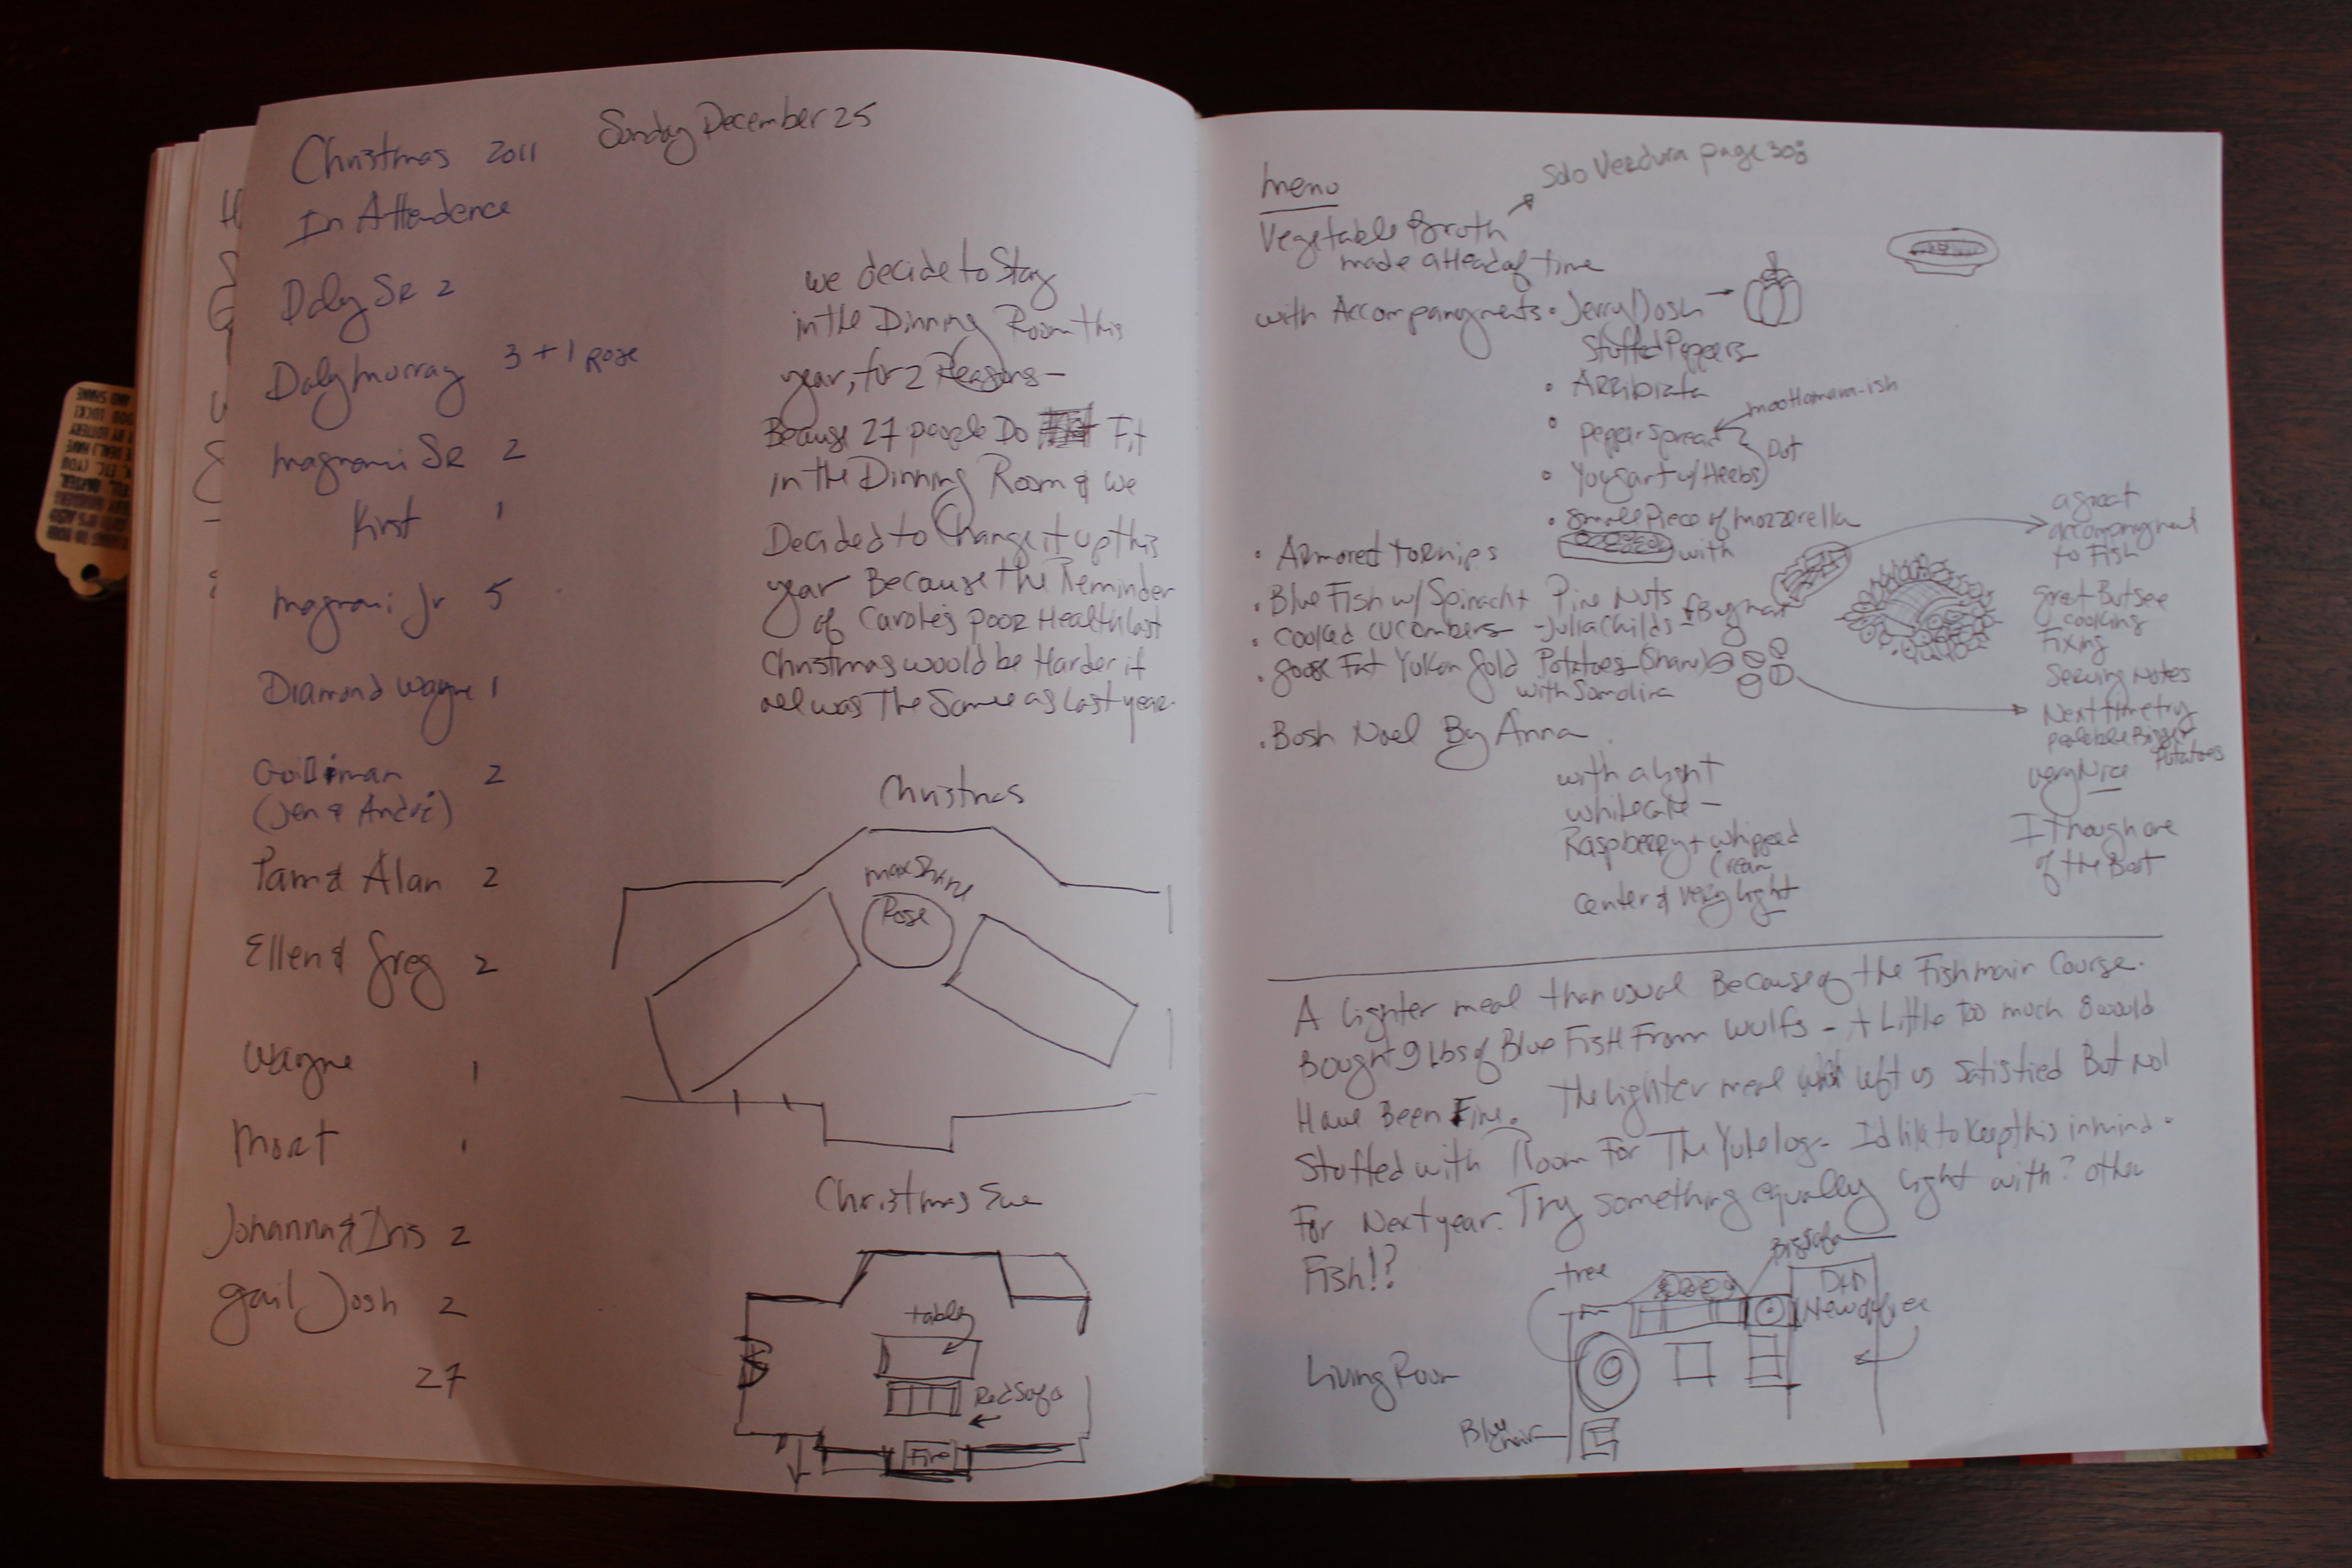 Christmas 2011
Sunday December 25
In Attendence
Daly Sr 2
Daly Murray 3 + 1 Rose
Magnani Sr 2
Kirst 1
Magnani Jr 5
Diamond Wayne 1
2
(Jen & André)
Pam & Alan 2
Ellen & Greg 2
Wayne 1
Mort 1
Johanna & Iris 2
Gail Josh 2
27
we decide to Stay
in the Dinning Room this
year, for 2 Reasons -
Because 27 people Do Fit
in the Dinning Room & we
Decided to Change it up this
year Because the Reminder
of Carole's poor Health last
Christmas would be Harder if
all was The Same as Last year.
Christmas
Max Shane
Rose
Christmas Eve
table
Red Sofa
Fire
menu
Solo Verdura page 308
Vegetable Broth
made aHead of time
with Accompanyments • Jerry/Josh
Stuffed Peppers
• ARRibiata
mootamara-ish
• pepper spread
Dot
• Yougart w/Herbs
• Small Piece of mozzerella
• Armored turnips
with
• Blue Fish w/ Spinach + Pine Nuts
• Cooked cucumbers - Julia Childs -
• goose Fat Yukon Gold Potatoes (Shane)
with Samolina
• Bosh Noel By Anna
with a light
white cake -
Raspberry + whipped
Cream
center & very light
a great
accompnyment
to Fish
great But see
cooking
Fixing
Serving Notes
Next time try
Bigger
Potatoes
very Nice
I though one
of the Best
A lighter meal than usual Because of the Fish main Course.
Bought 9 Lbs of Blue Fish From Wulfs - A Little Too much 8 would
Have Been Fine. The lighter meal left us satisfied But Not
Stuffed with Room For The Yule log - Id like to keep this in mind -
For Next year. Try something equally light with? other
Fish!?
tree
Big Sofa
New office
Living Room
Blue
Chair